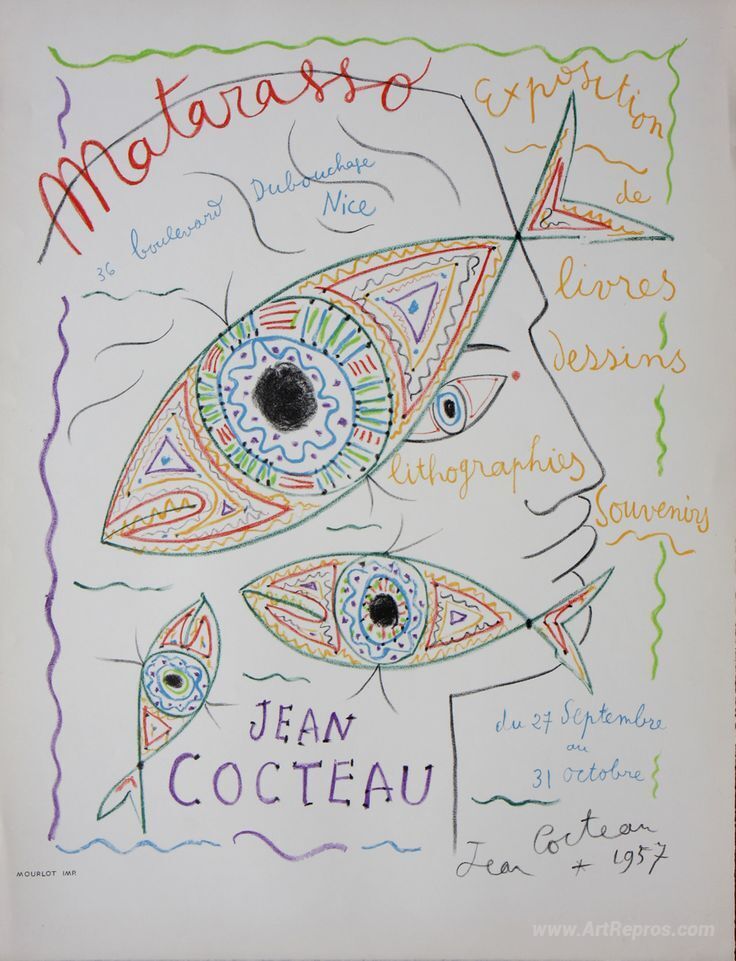 Matarasso
36 boulevard Dubouchage
Nice
Exposition
de
livres
dessins
lithographies
Souvenirs
JEAN
COCTEAU
du 27 Septembre
au
31 octobre
Jean Cocteau
* 1957
MOURLOT IMP.
www.ArtRepros.com